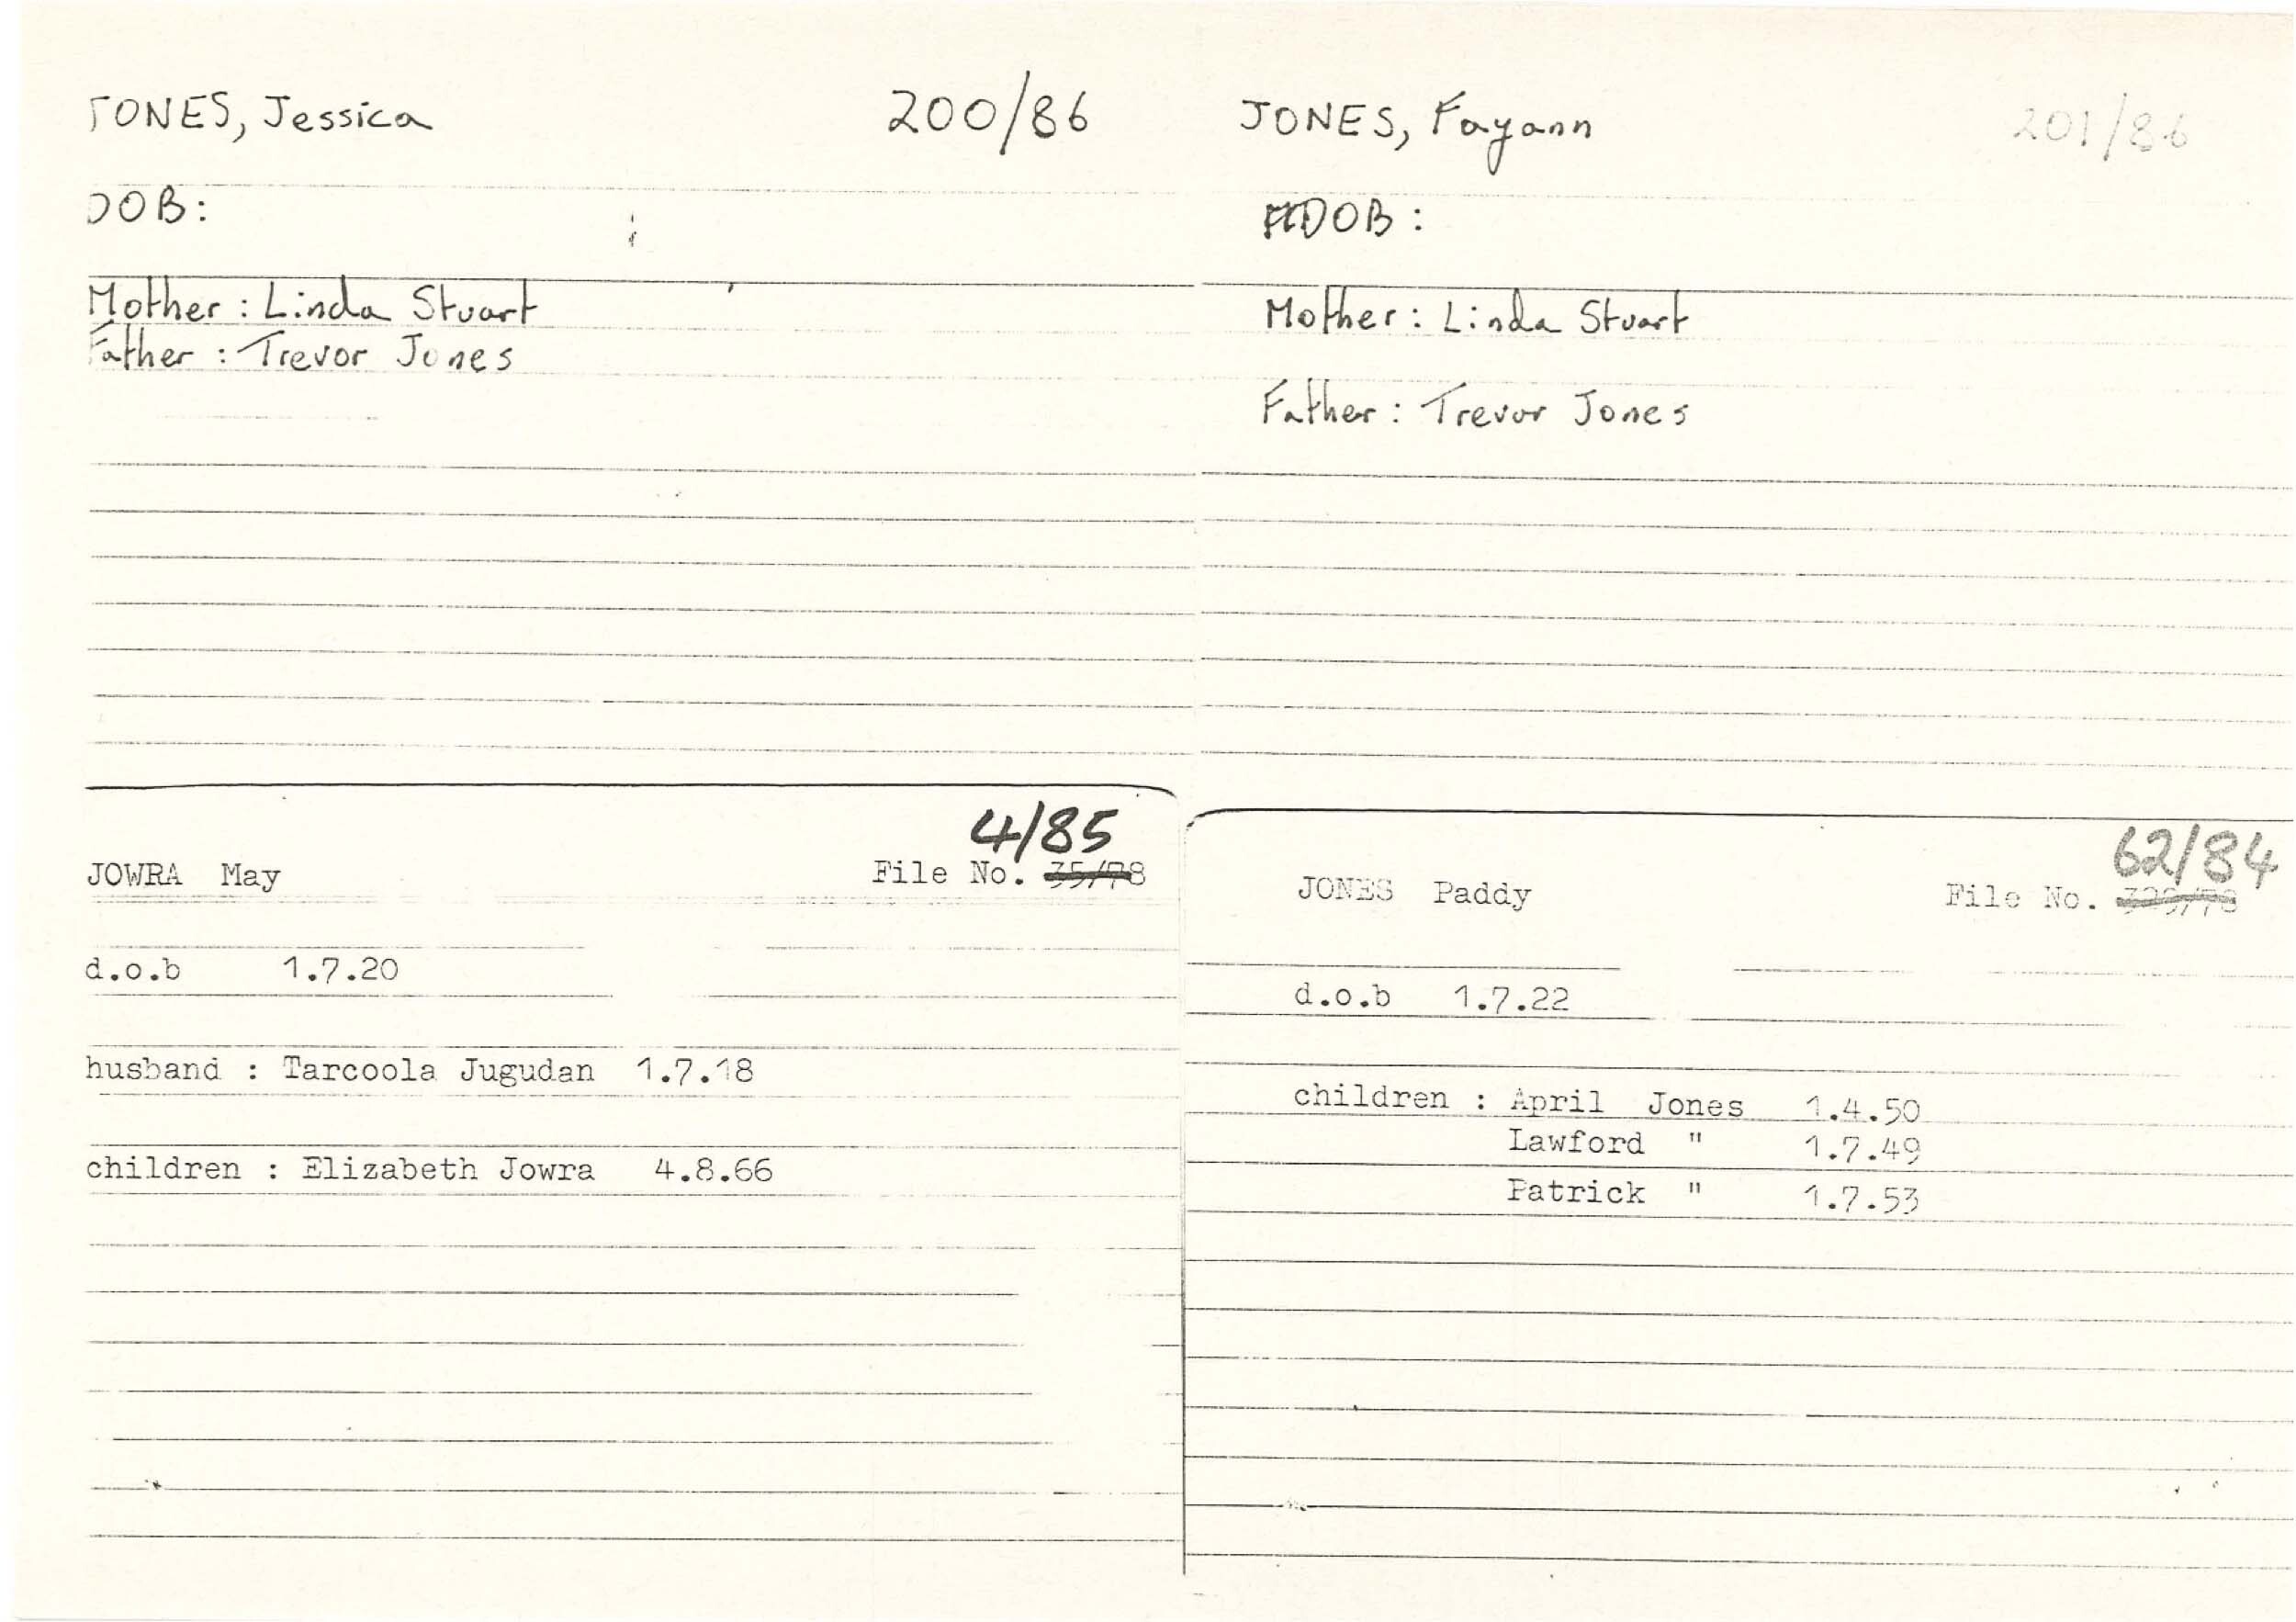 JONES, Jessica 200/86
DOB:
Mother : Linda Stuart
Father : Trevor Jones
JONES, Fayann 201/86
DOB :
Mother : Linda Stuart
Father : Trevor Jones
4/85
JOWRA May File No. 35/78
d.o.b 1.7.20
husband : Tarcoola Jugudan 1.7.18
children : Elizabeth Jowra 4.8.66
62/84
JONES Paddy File No.
d.o.b 1.7.22
children : April Jones 1.4.50
Lawford " 1.7.49
Patrick " 1.7.53